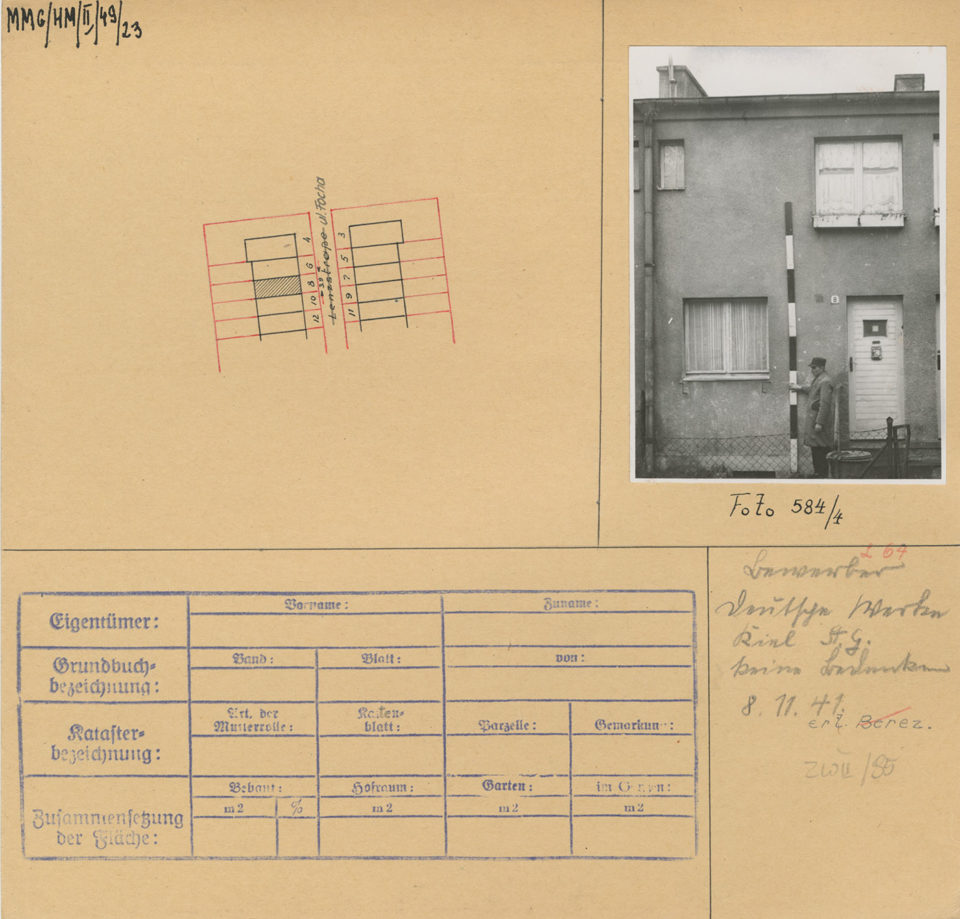 MMG/HM/II/49/23
ul. Focha
Lenzstraße
4
6
8
10
12
3
5
7
9
11
8
Foto 584/4
Eigentümer:
Vorname:
Zuname:
Grundbuch-
bezeichnung:
Band:
Blatt:
von:
Kataster-
bezeichnung:
Art. der
Mutterrolle:
Karten-
blatt:
Parzelle:
Gemarkung:
Zusammensetzung
der Fläche:
Bebaut:
Hofraum:
Garten:
im Ganzen:
m2
%
m2
m2
m2
L 64
Bewerber
Deutsche Werke
Kiel A.G.
keine Bedenken
8. 11. 41.